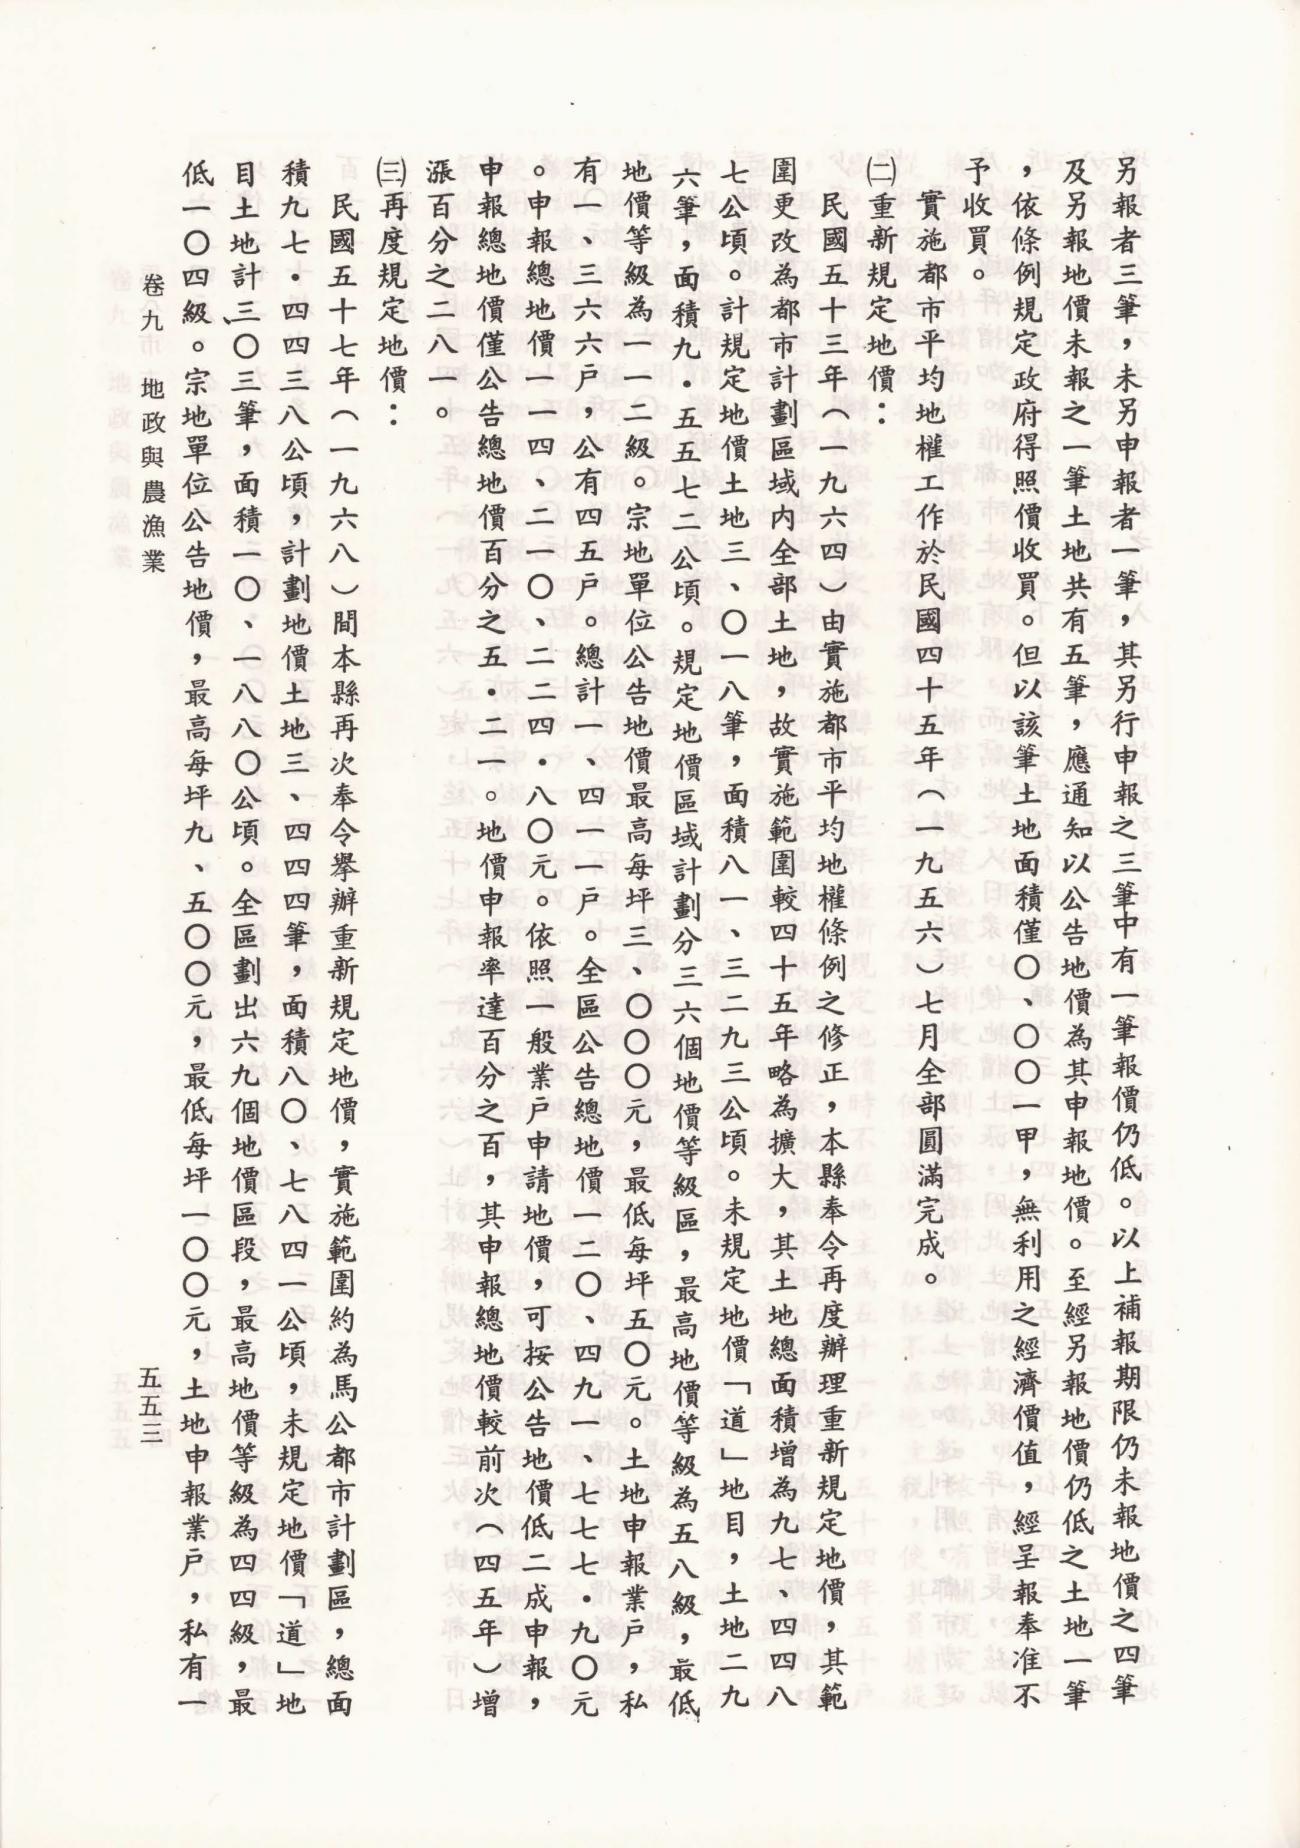 另報者三筆，未另申報者一筆，其另行申報之三筆中有一筆報價仍低。以上補報期限仍未報地價之四筆
及另報地價未報之一筆土地共有五筆，應通知以公告地價為其申報地價。至經另報地價仍低之土地一筆
，依條例規定政府得照價收買。但以該筆土地面積僅〇、〇〇〇一甲，無利用之經濟價值，經呈報奉准不
予收買。
實施都市平均地權工作於民國四十五年（一九五六）七月全部圓滿完成。
㈡重新規定地價：
民國五十三年（一九六四）由實施都市平均地權條例之修正，本縣奉令再度辦理重新規定地價，其範
圍更改為都市計劃區域內全部土地，故實施範圍較四十五年略為擴大，其土地總面積增為九七、四四八
七公頃。計規定地價土地三、〇一八筆，面積八一、三二九三公頃。未規定地價「道」地目，土地二九
六筆，面積九．五五七一公頃。規定地價區域計劃分三六個地價等級區，最高地價等級為五八級，最低
地價等級為一二級。宗地單位公告地價最高每坪三、〇〇〇元，最低每坪五〇元。土地申報業戶，私
有一、三六六戶，公有四五戶。總計一、四一一戶。全區公告總地價一二〇、四九一、七七七．九〇元
。申報總地價一一四、二一〇、二二四．八〇元。依照一般業戶申請地價，可按公告地價低二成申報，
申報總地價僅公告總地價百分之五．二一。地價申報率達百分之百，其申報總地價較前次（四五年）增
漲百分之二八一。
㈢再度規定地價：
民國五十七年（一九六八）間本縣再次奉令舉辦重新規定地價，實施範圍約為馬公都市計劃區，總面
積九七．四四三八公頃，計劃地價土地三、四四四筆，面積八〇、七八四一公頃，未規定地價「道」地
目土地計三〇三筆，面積一〇、一八八〇公頃。全區劃出六九個地價區段，最高地價等級為四四級，最
低一〇四級。宗地單位公告地價，最高每坪九、五〇〇元，最低每坪一〇〇元，土地申報業戶，私有一
卷九　地政與農漁業
五五三